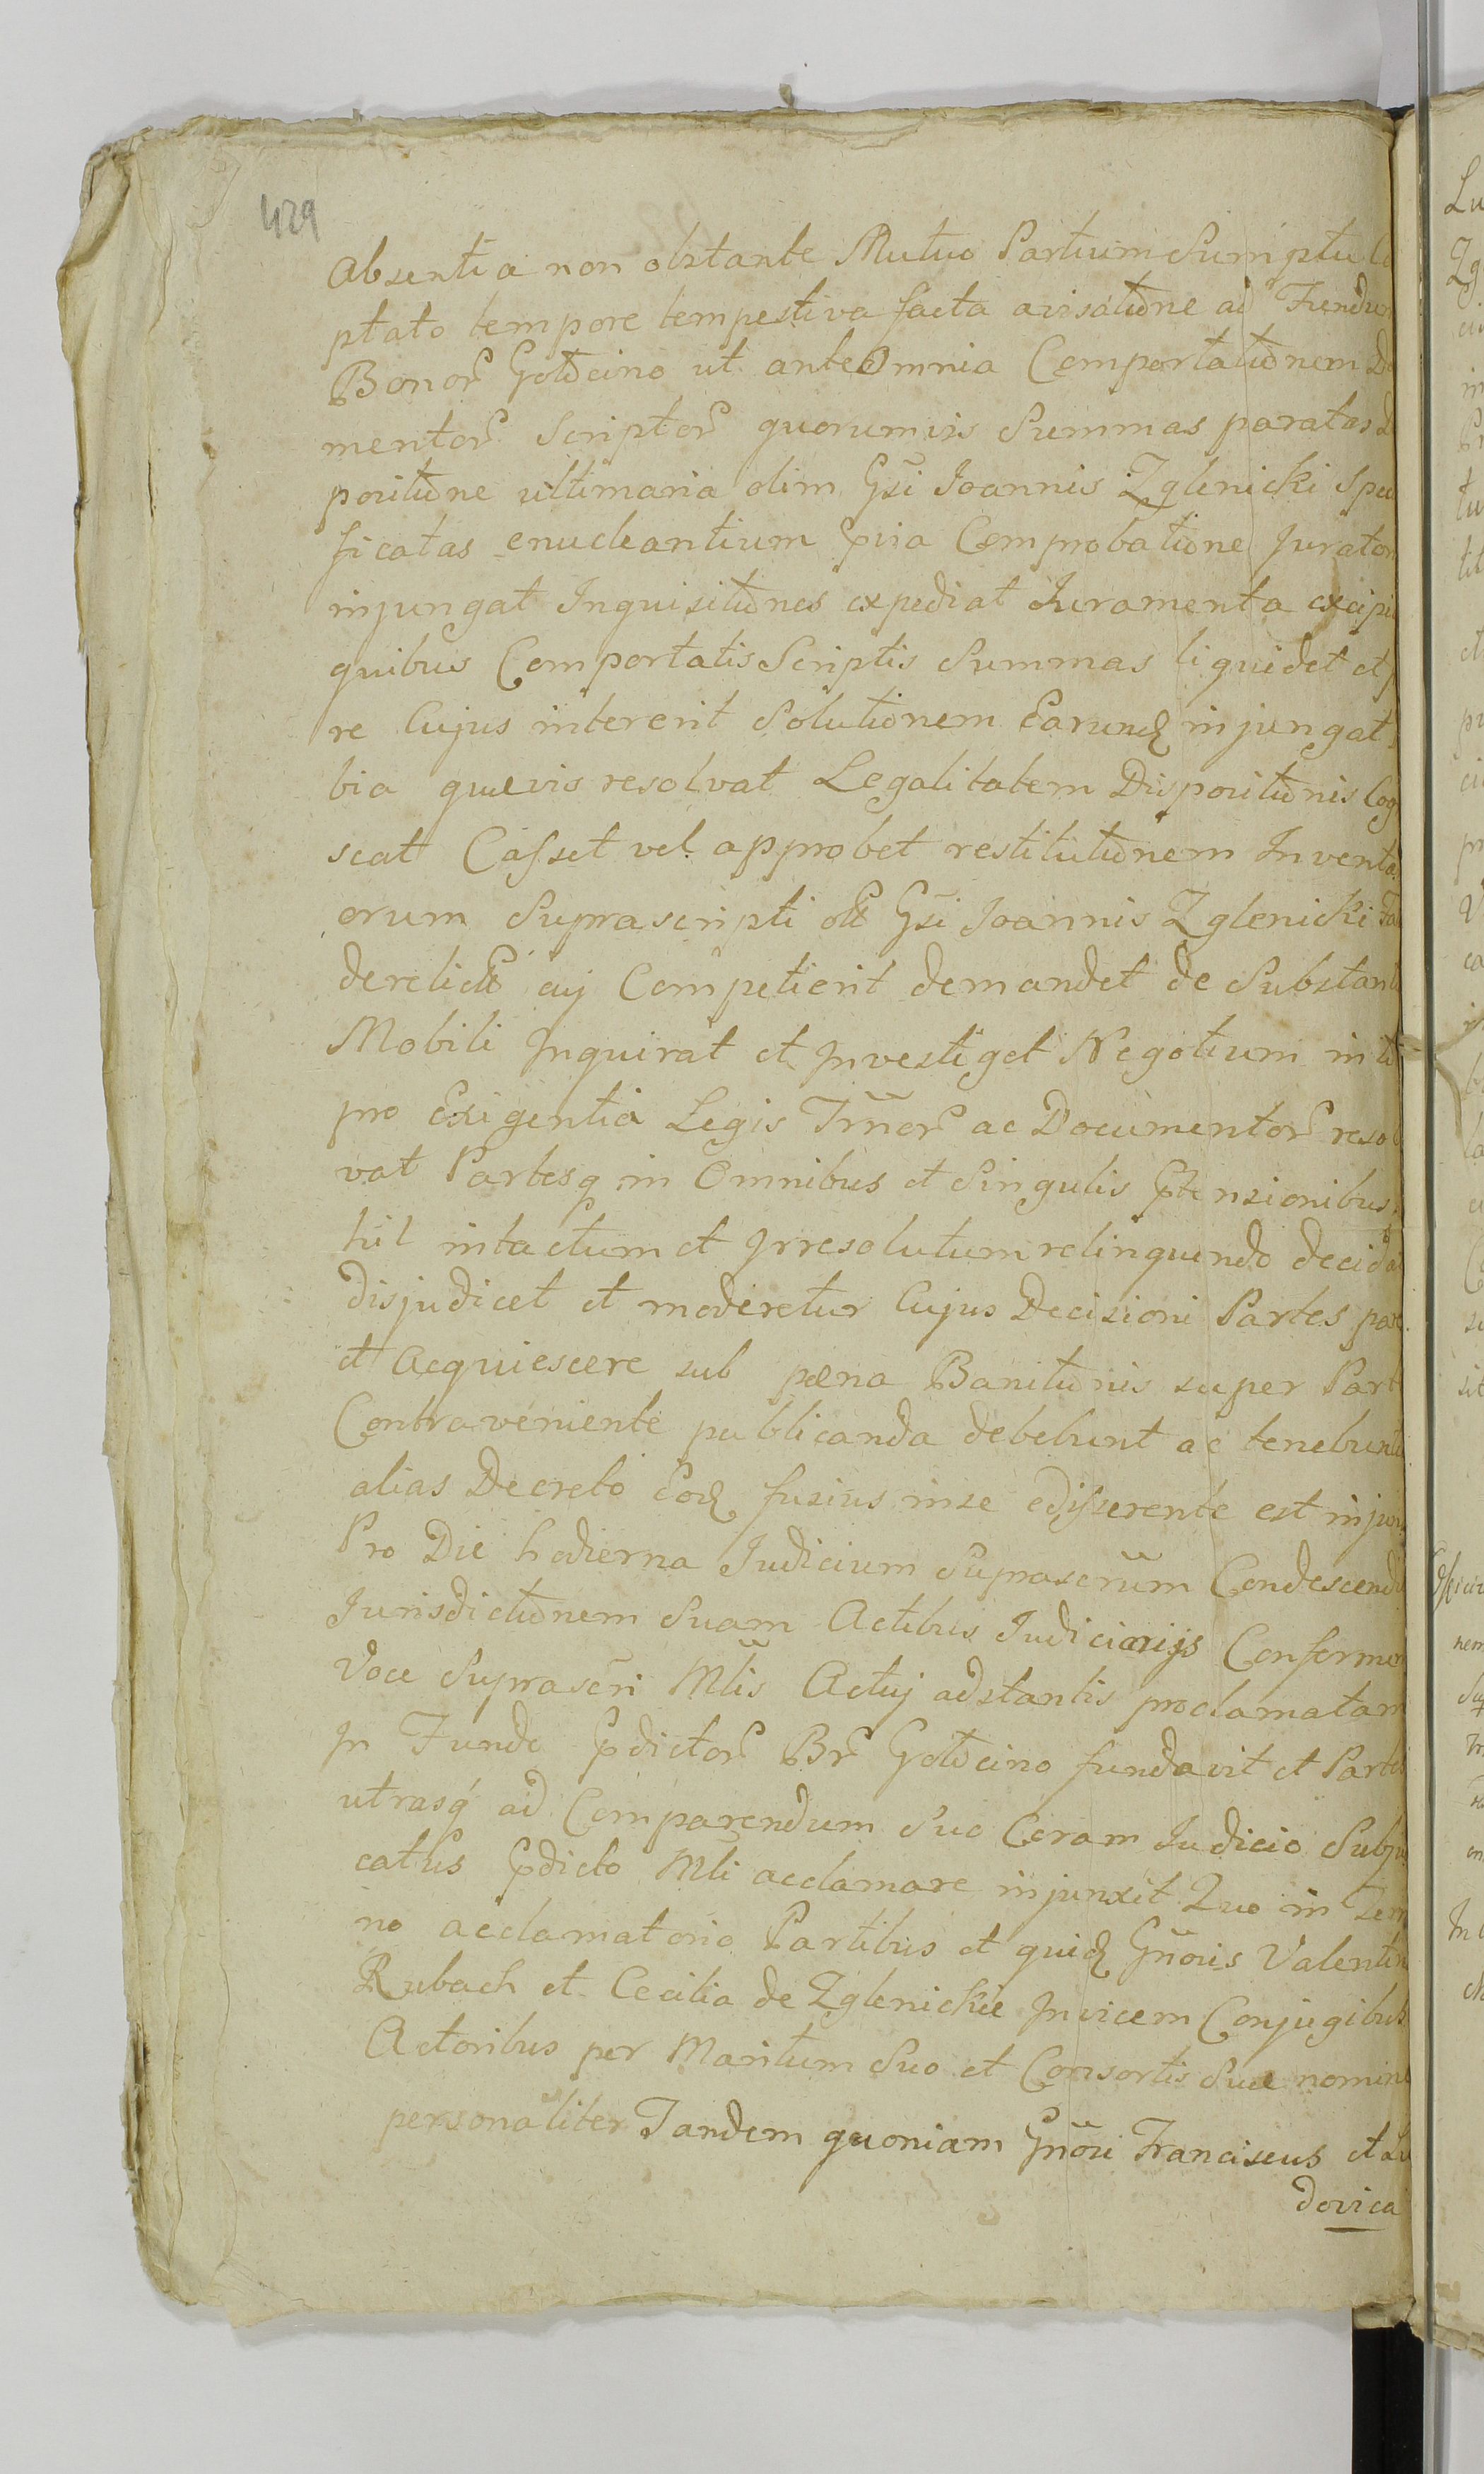 429
absentia non obstante Mutuo Partium Sumptu Ca
ptato tempore tempestiva facta avisatione ad Fundum
Bonor Gołocino ut ante Omnia Comportationem Do
mentor Scriptor quorumvis Summas paratas
positione ultimaria olim Gsi Joannis Zglenicki Speci
ficatas enucleantium pvia Comprobatione Jurator
injungat Inquisitiones expediat Juramenta excipi
quibus Comportatis Scriptis Summas liquidet et
re Cujus intererit Solutionem Earundq injungat
bia quævis resolvat Legalitatem Dispositionis Cog
scat Casset vel approbet restitutionem Inventa
orum Suprascripti olt Gsi Joannis Zglenicki
derelict cuj Competierit demandet de Substanti
Mobili Inquirat et Investiget Negotium in
pro Exigentia Legis Trnor ac Documentor resol
vat Partesq in Omnibus et Singulis Ptensionibus
hil intactum et Irresolutum relinquendo decidat
disjudicet et moderetur Cujus Decisioni Partes pare
et acquiescere sub pæna Banitionis super Parte
Contraveniente publicanda debebunt ac tenebuntu
alias Decreto Eodq fusius in se edisserente est injun
Pro Die hodierna Judicium Suprascrum Condescendi
Jurisdictionem Suam Actibus Judiciarijs Conformem
Voce Suprascri Mlis Actuj adstantis proclamatam
In Fundo Pdictor Br Gołocino fundavit et Partes
utrasq ad Comparendum Suo Coram Judicio Subju
catus Pdicto Mli acclamare injunxit Quo in Term
no acclamatorio Partibus et quidq Gnosis Valentin
Rubach et Cecilia de Zglenickie Invicem Conjugibus
Actoribus per Maritum Suo et Consortis Suæ nomine
personaliter Tandem quoniam Gnosi Franciscus et Lu
dovica